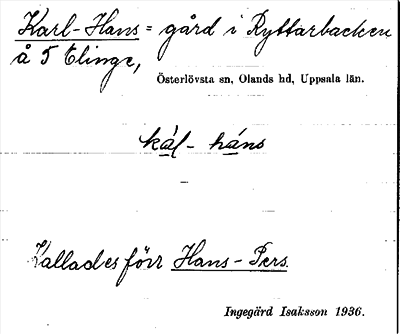 Karl-Hans = gård i Ryttarbacken
å 5 Elinge,
Österlövsta sn, Olands hd, Uppsala län.
kál- háns
Kallades förr Hans-Pers.
Ingegärd Isaksson 1936.